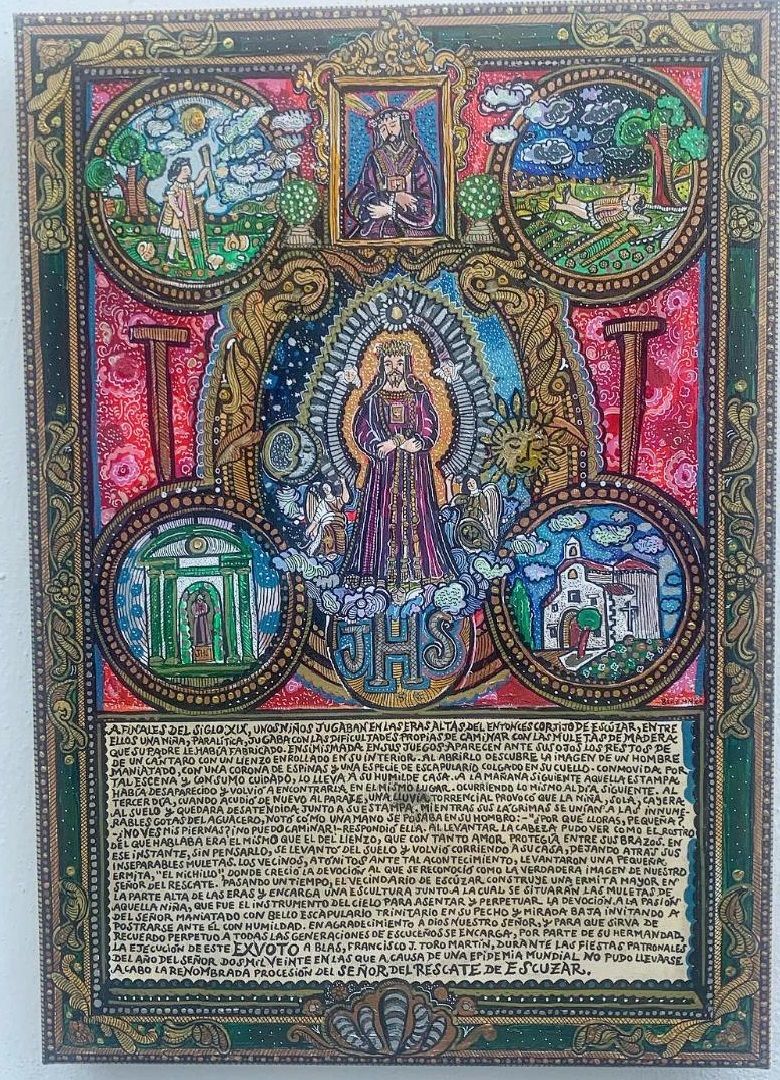 JHS
A FINALES DEL SIGLO XIX, UNOS NIÑOS JUGABAN EN LAS ERAS ALTAS DEL ENTONCES CORTIJO DE ESCÚZAR, ENTRE
ELLOS UNA NIÑA, PARALÍTICA, JUGABA CON LAS DIFICULTADES PROPIAS DE CAMINAR CON LAS MULETAS DE MADERA
QUE SU PADRE LE HABÍA FABRICADO. ENSIMISMADA EN SUS JUEGOS APARECEN ANTE SUS OJOS LOS RESTOS DE
DE UN CÁNTARO CON UN LIENZO ENROLLADO EN SU INTERIOR. AL ABRIRLO DESCUBRE LA IMAGEN DE UN HOMBRE
MANIATADO, CON UNA CORONA DE ESPINAS Y UNA ESPECIE DE ESCAPULARIO COLGADO EN SU CUELLO. CONMOVIDA POR
TAL ESCENA Y CON SUMO CUIDADO, LO LLEVA A SU HUMILDE CASA. A LA MAÑANA SIGUIENTE AQUELLA ESTAMPA
HABÍA DESAPARECIDO Y VOLVIÓ A ENCONTRARLA EN EL MISMO LUGAR. OCURRIENDO LO MISMO AL DÍA SIGUIENTE. AL
TERCER DÍA, CUANDO ACUDIÓ DE NUEVO AL PARAJE, UNA LLUVIA TORRENCIAL PROVOCÓ QUE LA NIÑA, SOLA, CAYERA
AL SUELO Y QUEDARA DESATENDIDA JUNTO A SU ESTAMPA, MIENTRAS SUS LÁGRIMAS SE UNÍAN A LAS INNUME-
RABLES GOTAS DEL AGUACERO, NOTÓ COMO UNA MANO SE POSABA EN SU HOMBRO: -"¿POR QUÉ LLORAS, PEQUEÑA?
-¿NO VES MIS PIERNAS? ¡NO PUEDO CAMINAR!- RESPONDIÓ ELLA. AL LEVANTAR LA CABEZA PUDO VER COMO EL ROSTRO
DEL QUE HABLABA ERA EL MISMO QUE EL DEL LIENZO, QUE CON TANTO AMOR PROTEGÍA ENTRE SUS BRAZOS. EN
ESE INSTANTE, SIN PENSARLO, SE LEVANTÓ DEL SUELO Y VOLVIÓ CORRIENDO A SU CASA, DEJANDO ATRÁS SUS
INSEPARABLES MULETAS. LOS VECINOS, ATÓNITOS ANTE TAL ACONTECIMIENTO, LEVANTARON UNA PEQUEÑA
ERMITA, "EL NICHILLO", DONDE CRECIÓ LA DEVOCIÓN AL QUE SE RECONOCÍA COMO LA VERDADERA IMAGEN DE NUESTRO
SEÑOR DEL RESCATE. PASANDO UN TIEMPO, EL VECINDARIO DE ESCÚZAR CONSTRUYE UNA ERMITA MAYOR EN
LA PARTE ALTA DE LAS ERAS Y ENCARGA UNA ESCULTURA JUNTO A LA CUAL SE SITUARÁN LAS MULETAS DE
AQUELLA NIÑA, QUE FUE EL INSTRUMENTO DEL CIELO PARA ASENTAR Y PERPETUAR LA DEVOCIÓN A LA PASIÓN
DEL SEÑOR MANIATADO CON BELLO ESCAPULARIO TRINITARIO EN SU PECHO Y MIRADA BAJA INVITANDO A
POSTRARSE ANTE ÉL CON HUMILDAD. EN AGRADECIMIENTO A DIOS NUESTRO SEÑOR, Y PARA QUE SIRVA DE
RECUERDO PERPETUO A TODAS LAS GENERACIONES DE ESCUCEÑOS SE ENCARGA, POR PARTE DE SU HERMANDAD,
LA EJECUCIÓN DE ESTE EXVOTO A BLAS, FRANCISCO J. TORO MARTÍN, DURANTE LAS FIESTAS PATRONALES
DEL AÑO DEL SEÑOR DOS MIL VEINTE EN LAS QUE A CAUSA DE UNA EPIDEMIA MUNDIAL NO PUDO LLEVARSE
A CABO LA RENOMBRADA PROCESIÓN DEL SEÑOR DEL RESCATE DE ESCUZAR.